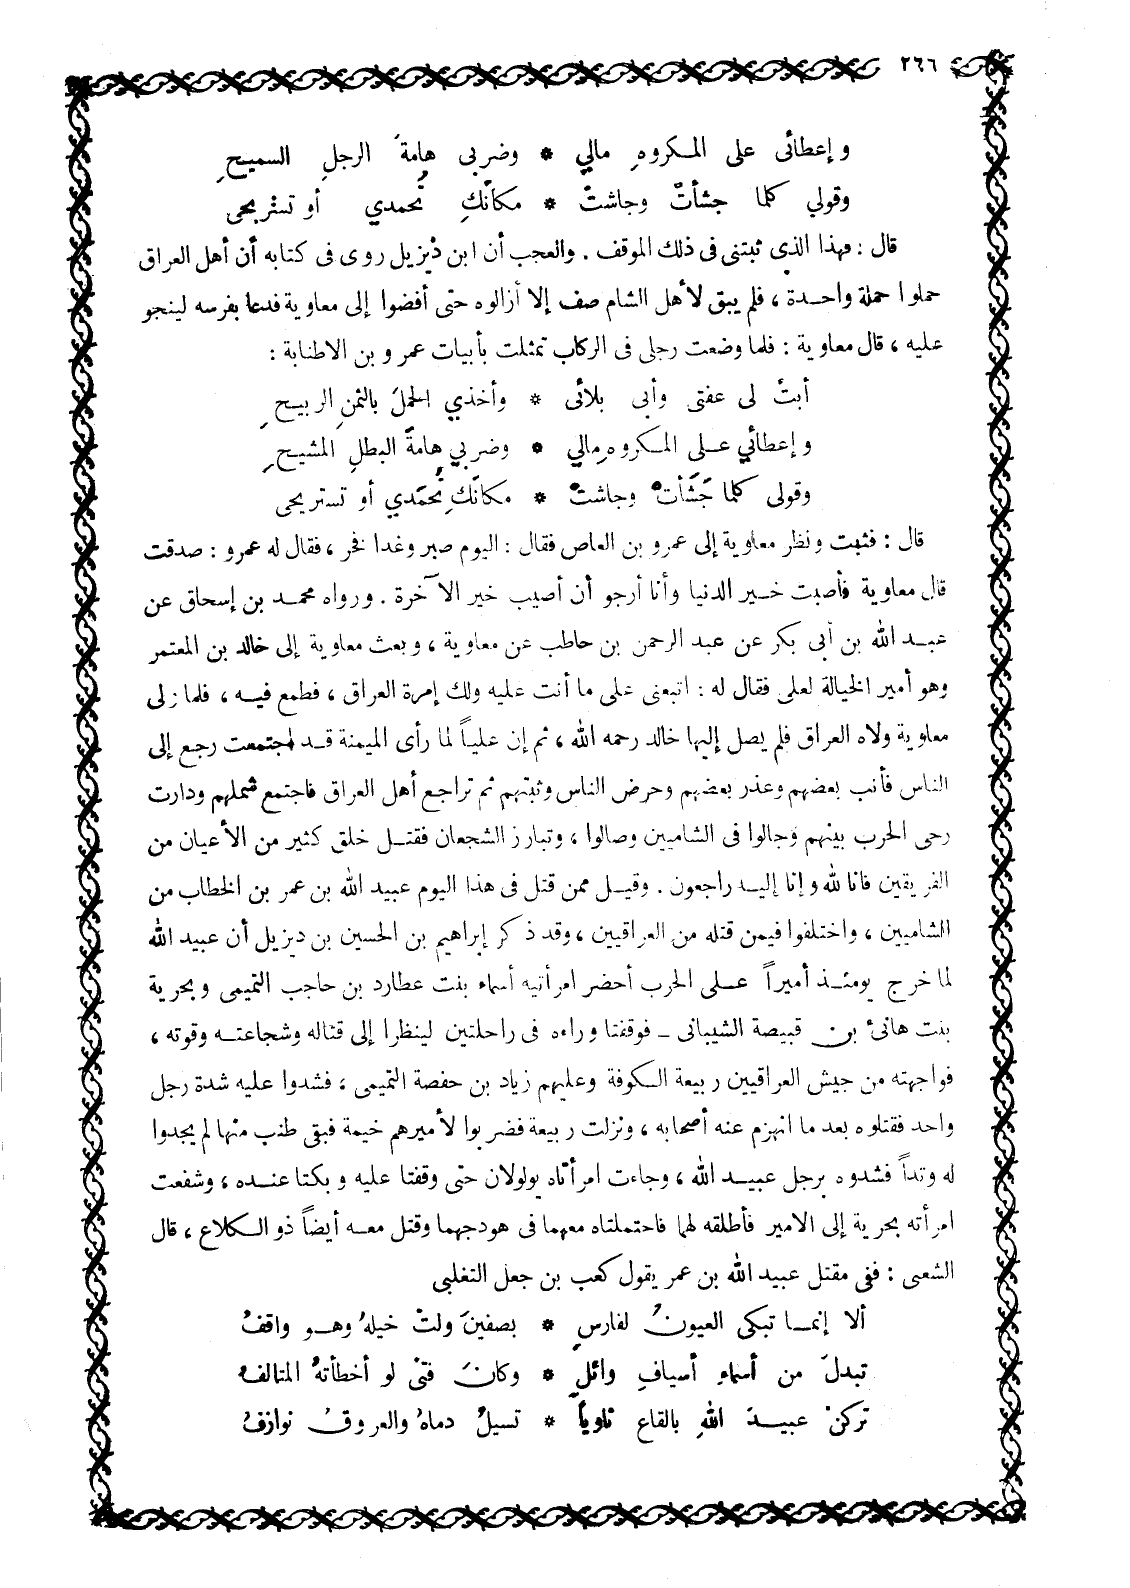 ٢٦٦
وإعطائى على المكروهِ مالي * وضربى هامةَ الرجلِ السميحِ
وقولي كلما جشأتْ وجاشتْ * مكانَكِ تُحمدي أو تسترْيحى
قال : فهذا الذي ثبتنى فى ذلك الموقف . والعجب أن ابن ديزيل روى فى كتابه أن أهل العراق
حملوا حملة واحدة ، فلم يبق لأهل الشام صف إلا أزالوه حتى أفضوا إلى معاوية فدعا بفرسه لينجو
عليه ، قال معاوية : فلما وضعت رجلى فى الركاب تمثلت بأبيات عمرو بن الاطنابة :
أبتْ لى عفتى وأبى بلائى * وأخذي الحملَ بالثمنِ الربيحِ
وإعطائي على المكروهِ مالي * وضربي هامةَ البطلِ المشيحِ
وقولى كلما جَشَأتْ وجاشتْ * مكانَكِ تُحمَدي أو تستريحى
قال : فثبت ونظر معاوية إلى عمرو بن العاص فقال : اليوم صبر وغدا فخر ، فقال له عمرو : صدقت
قال معاوية فأصبت خير الدنيا وأنا أرجو أن أصيب خير الآخرة . ورواه محمد بن إسحاق عن
عبد الله بن أبى بكر عن عبد الرحمن بن حاطب عن معاوية ، وبعث معاوية إلى خالد بن المعتمر
وهو أمير الخيالة لعلى فقال له : اتبعنى على ما أنت عليه ولك إمرة العراق ، فطمع فيه ، فلما ولى
معاوية ولاه العراق فلم يصل إليها خالد رحمه الله ، ثم إن علياً لما رأى الميمنة قد اجتمعت رجع إلى
الناس فأنب بعضهم وعذر بعضهم وحرض الناس وثبتهم ثم تراجع أهل العراق فاجتمع شملهم ودارت
رحى الحرب بينهم وجالوا فى الشاميين وصالوا ، وتبارز الشجعان فقتل خلق كثير من الأعيان من
الفريقين فانا لله وإنا إليه راجعون . وقيل ممن قتل فى هذا اليوم عبيد الله بن عمر بن الخطاب من
الشاميين ، واختلفوا فيمن قتله من العراقيين ، وقد ذكر إبراهيم بن الحسين بن ديزيل أن عبيد الله
لما خرج يومئذ أميراً على الحرب أحضر امرأتيه أسماء بنت عطارد بن حاجب التميمى وبحرية
بنت هانئ بن قبيصة الشيبانى ـ فوقفتا وراءه فى راحلتين لينظرا إلى قتاله وشجاعته وقوته ،
فواجهته من جيش العراقيين ربيعة الكوفة وعليهم زياد بن حفصة التميمى ، فشدوا عليه شدة رجل
واحد فقتلوه بعد ما انهزم عنه أصحابه ، ونزلت ربيعة فضربوا لأميرهم خيمة فبقى طنب منها لم يجدوا
له وتداً فشدوه برجل عبيد الله ، وجاءت امرأتاه يولولان حتى وقفتا عليه وبكتا عنده ، وشفعت
امرأته بحرية إلى الامير فأطلقه لهما فاحتملتاه معهما فى هودجهما وقتل معه أيضاً ذو الكلاع ، قال
الشعبى : ففى مقتل عبيد الله بن عمر يقول كعب بن جعل التغلبى
ألا إنما تبكى العيونُ لفارسٍ * بصفينَ ولتْ خيلهُ وهو واقفُ
تبدلَ من أسماءِ أسيافِ وائلٍ * وكانَ فتىً لو أخطأتهُ المتالفُ
تركنَ عبيدَ اللهِ بالقاع ثاوياً * تسيلُ دماهُ والعروقُ نوازفُ